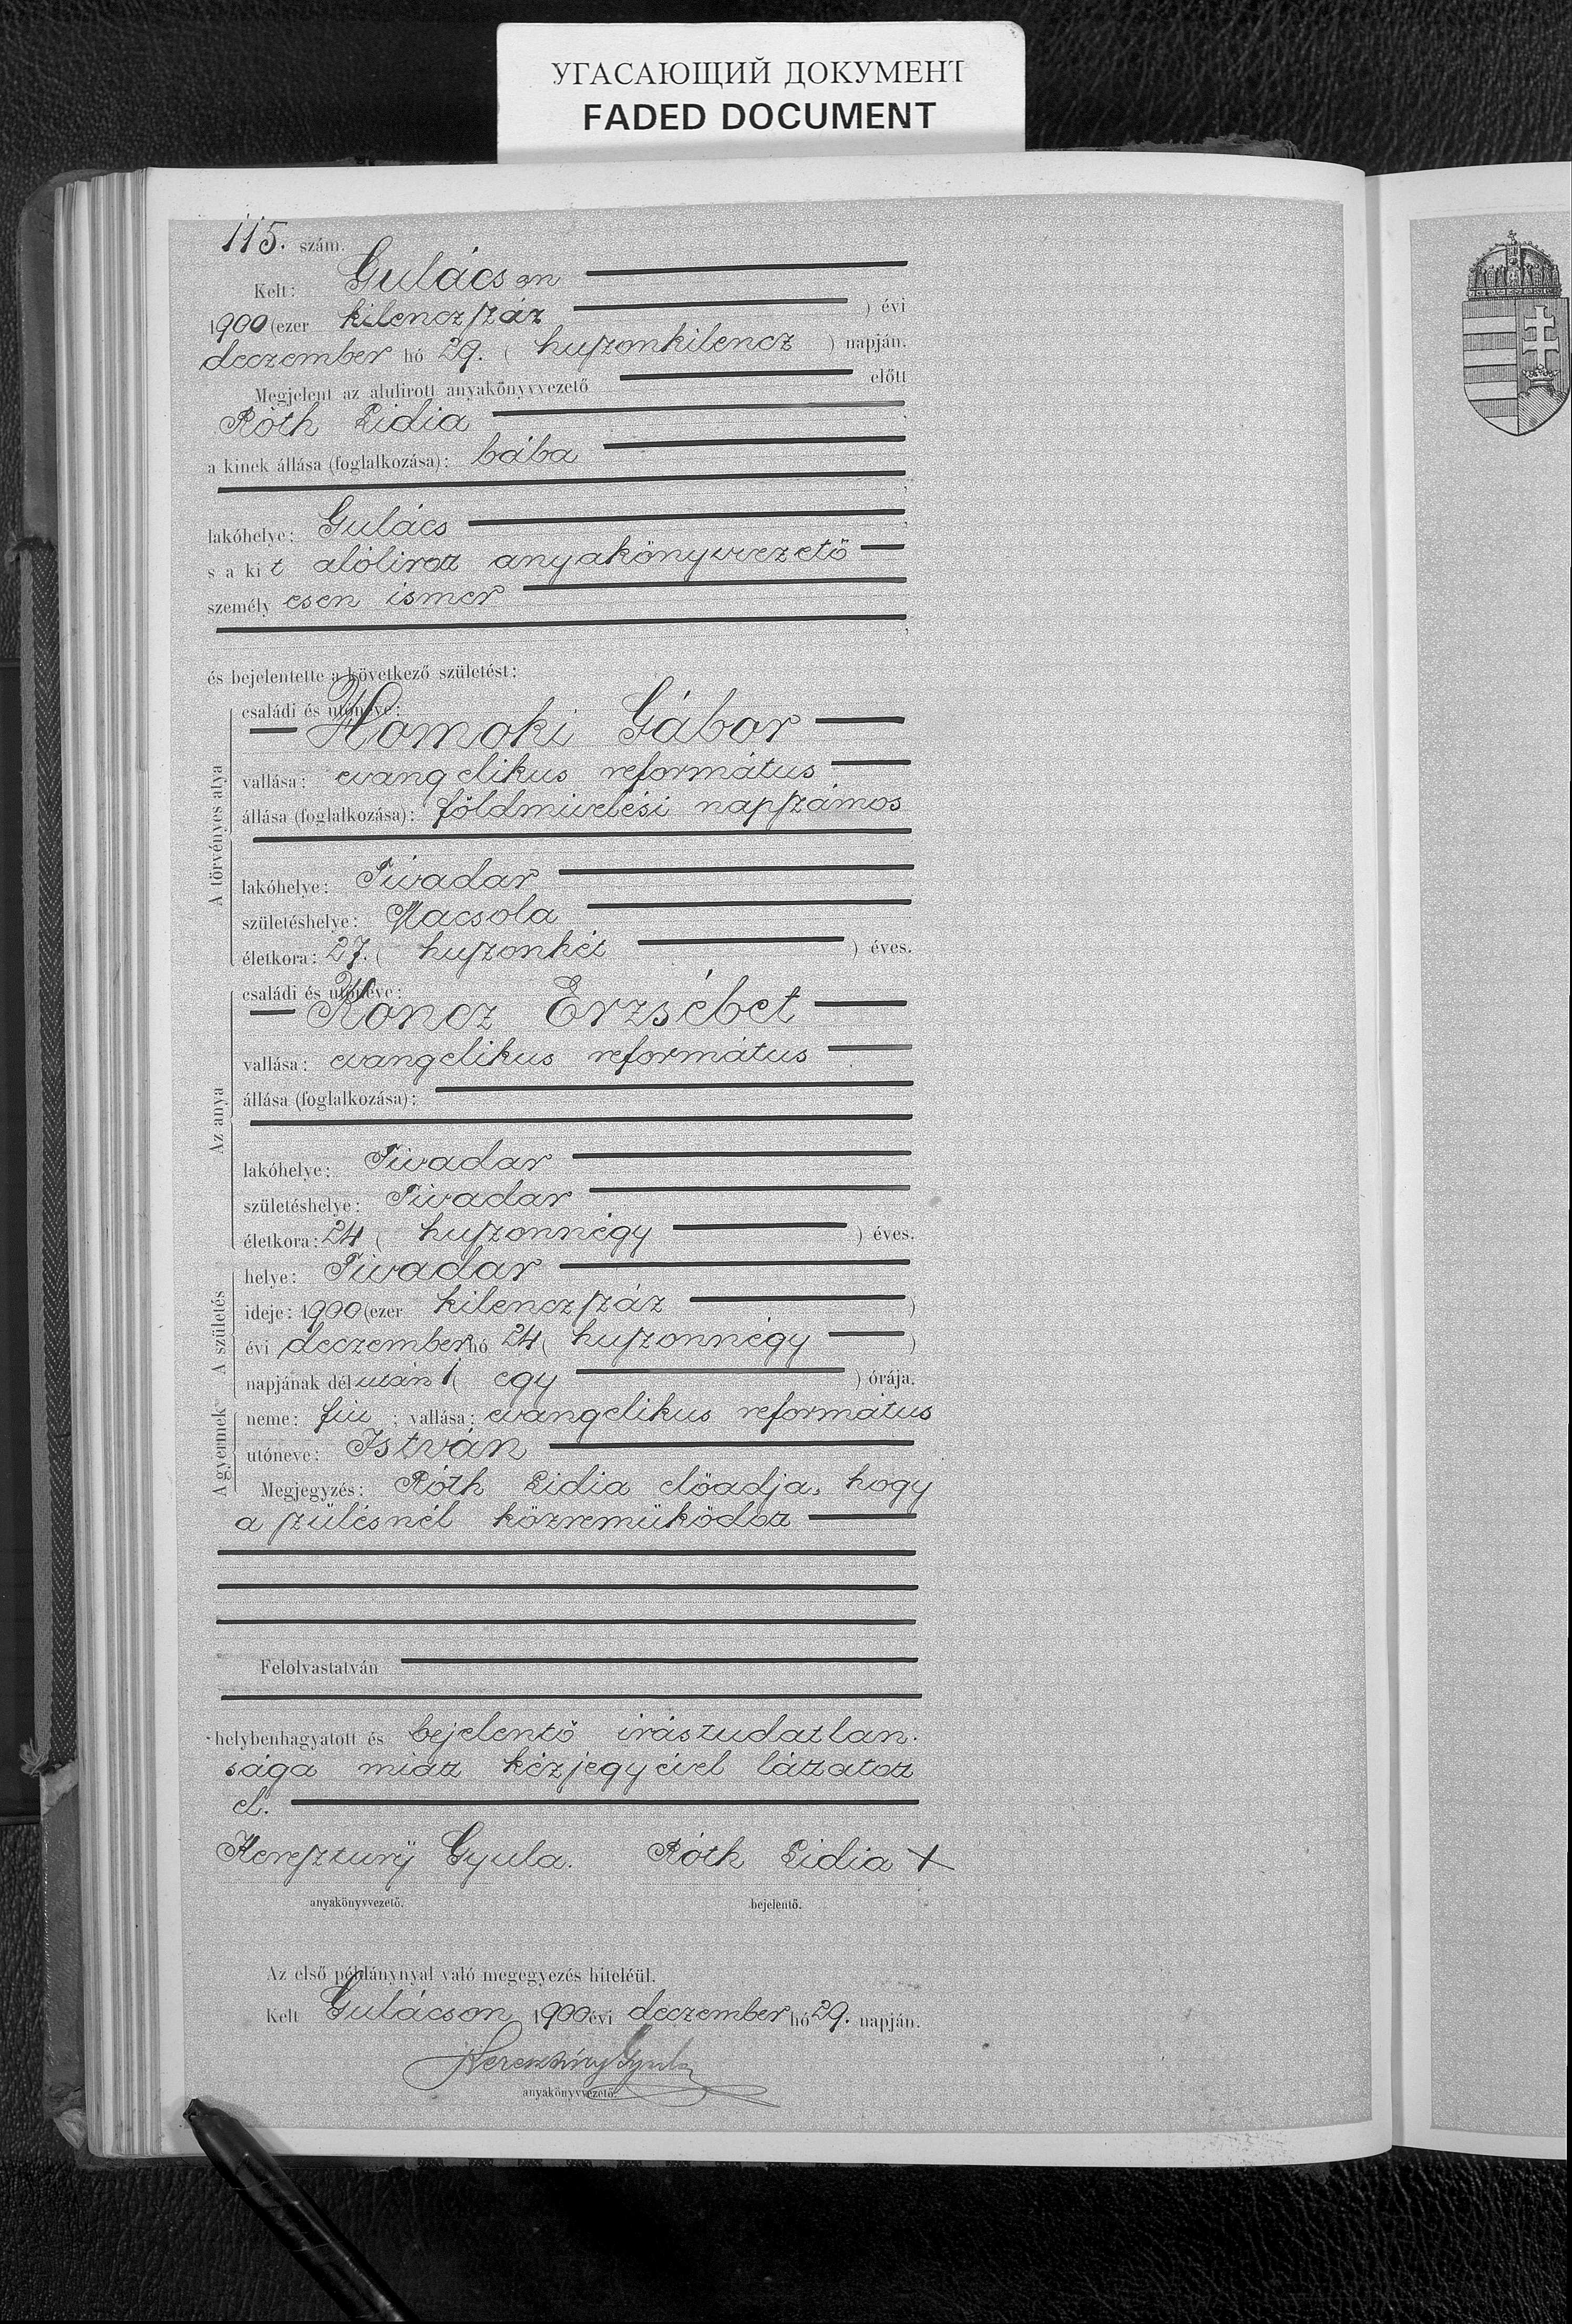 УГАСАЮЩИЙ ДОКУМЕНТ
FADED DOCUMENT
115. szám.
Kelt: Gulácson
1900 (ezer kilenczszáz ) évi
deczember hó 29. ( huszonkilencz ) napján.
Megjelent az alulirott anyakönyvvezető előtt
Róth Lidia
a kinek állása (foglalkozása): bába
lakóhelye: Gulács
s a kit alólirott anyakönyvvezető
személyesen ismer
és bejelentette a következő születést:
A törvényes atya
családi és utóneve:
Homoki Gábor
vallása: evangelikus református
állása (foglalkozása): földmivelési napszámos
lakóhelye: Tivadar
születéshelye: Macsola
életkora: 27. ( huszonhét ) éves.
Az anya
családi és utóneve:
Koncz Erzsébet
vallása: evangelikus református
állása (foglalkozása):
lakóhelye: Tivadar
születéshelye: Tivadar
életkora: 24 ( huszonnégy ) éves.
A születés
helye: Tivadar
ideje: 1900 (ezer kilenczszáz )
évi deczember hó 24 ( huszonnégy )
napjának délután 1 ( egy ) órája.
A gyermek
neme: fiu ; vallása: evangelikus református
utóneve: István
Megjegyzés: Róth Lidia előadja, hogy
a szülésnél közremüködött
Felolvastatván
helybenhagyatott és bejelentő irástudatlan-
sága miatt kézjegyével láttatott
el.
Kereszturÿ Gyula. Róth Lidia +
anyakönyvvezető. bejelentő.
Az első példánynyal való megegyezés hiteléül.
Kelt Gulácson 1900 évi deczember hó 29. napján.
Keresztúry Gyula
anyakönyvvezető.